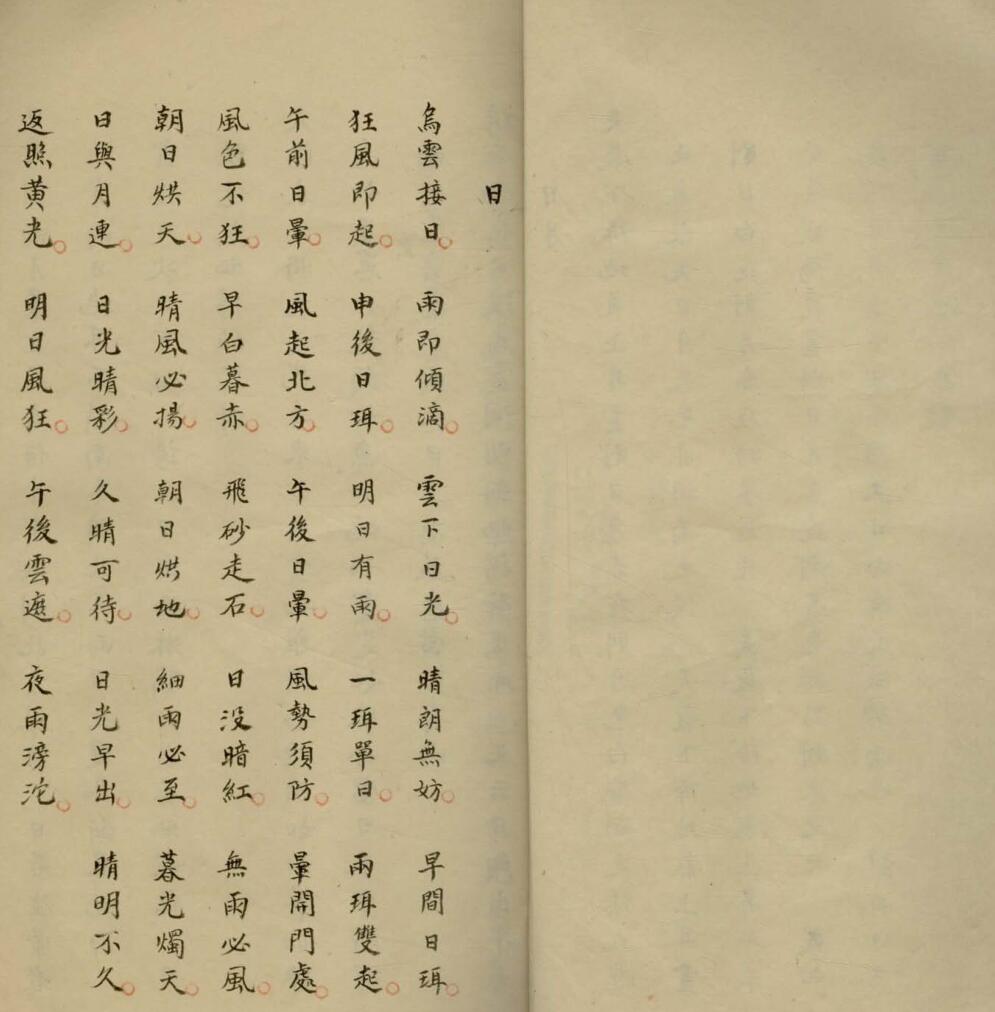 日
烏雲接日。雨即傾滴。雲下日光。晴朗無妨。早間日珥。
狂風即起。申後日珥。明日有雨。一珥單日。兩珥雙起。
午前日暈。風起北方。午後日暈。風勢須防。暈開門處。
風色不狂。早白暮赤。飛砂走石。日没暗紅。無雨必風。
朝日烘天。晴風必揚。朝日烘地。細雨必至。暮光燭天。
日與月連。日光晴彩。久晴可待。日光早出。晴明不久。
返照黄光。明日風狂。午後雲遮。夜雨滂沱。